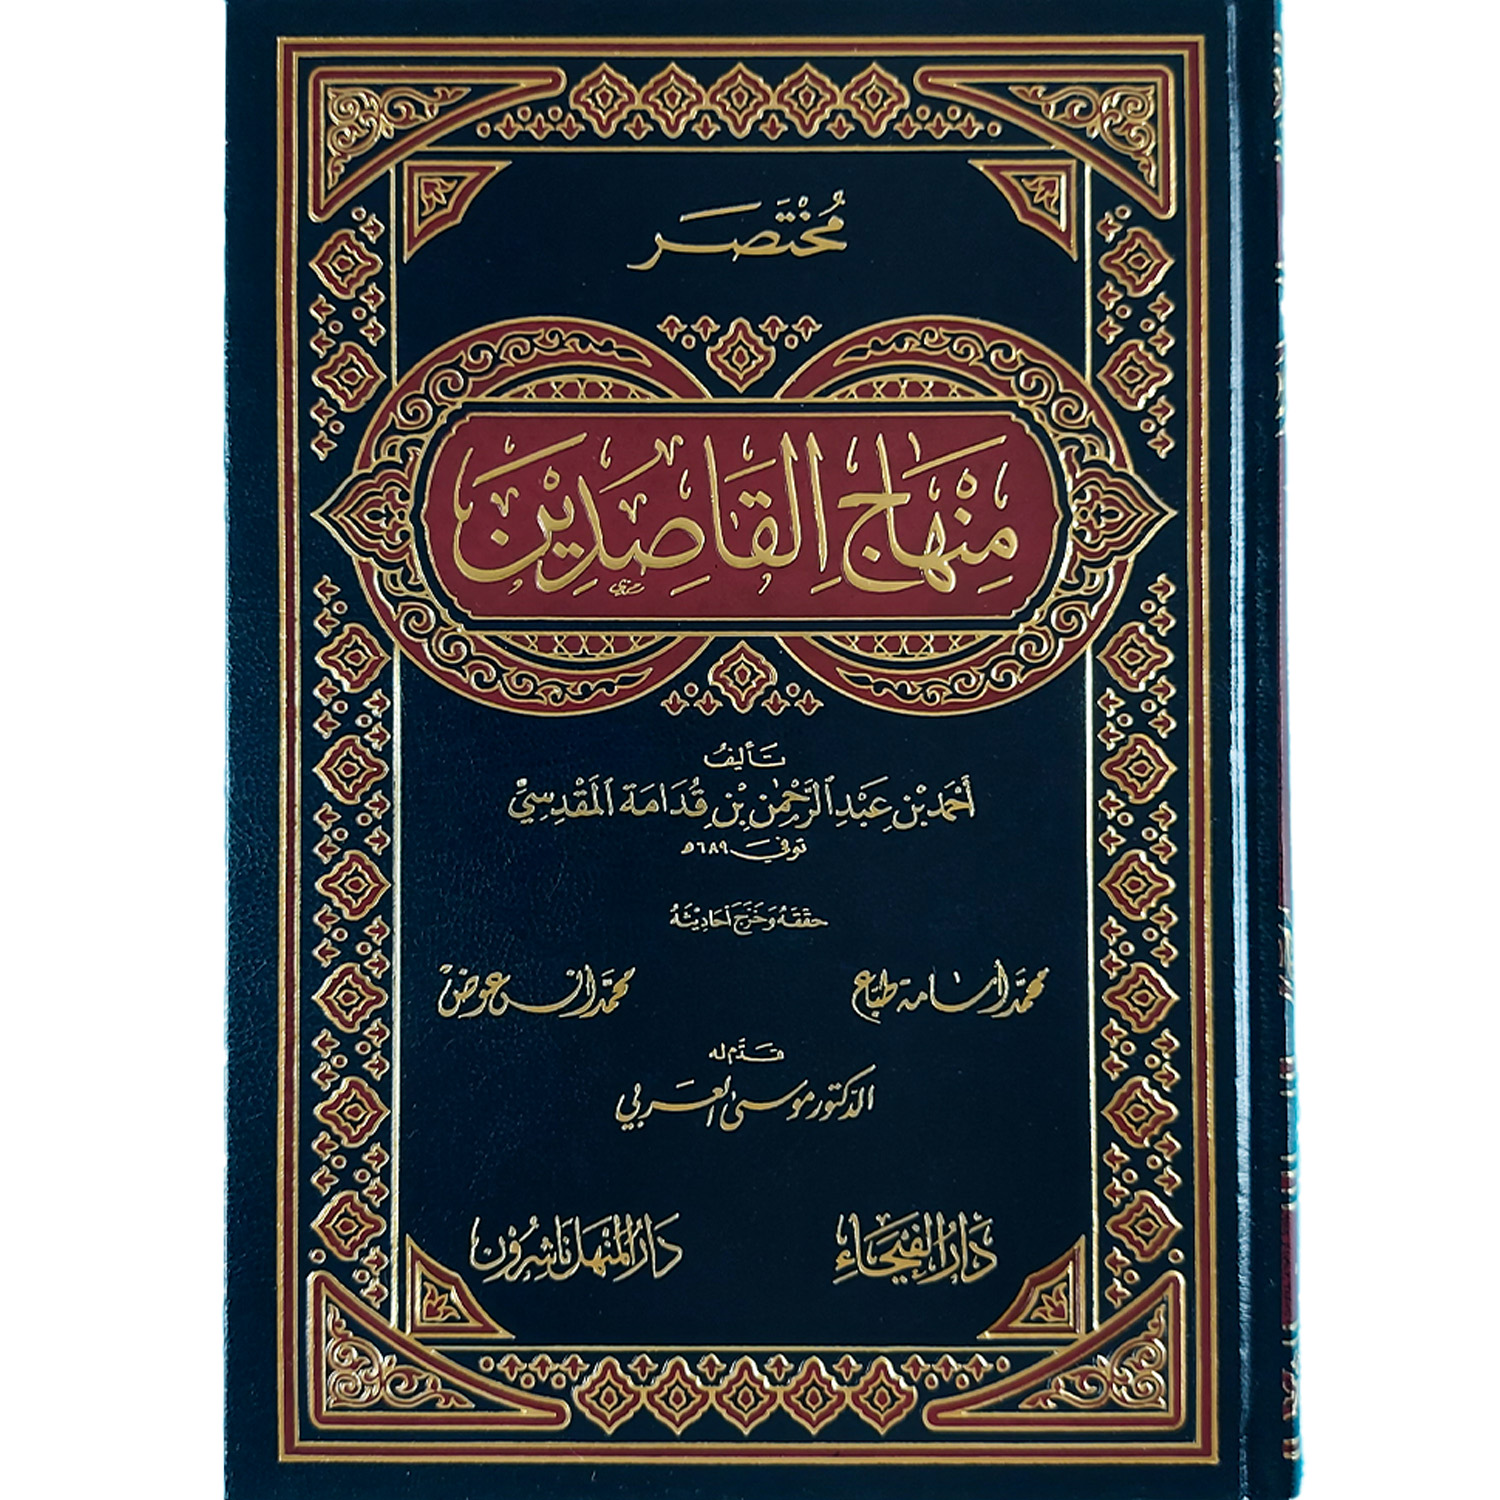 مُخْتَصَر
مِنْهَاجُ القَاصِدِيْنَ
تَأليفُ
أَحْمَد بْن عَبْدِ الرَّحْمٰن بْن قُدَامَة المَقْدِسِيّ
توفي ٦٨٩هـ
حَقَّقَهُ وَخَرَّجَ أحَادِيثَهُ
محمَّد أسامة طبّاع
محمَّد أنس عوض
قدَّم له
الدكتور موسى العربي
دَارُ الفَيْحَاء
دَارُ المَنْهَل نَاشِرُون